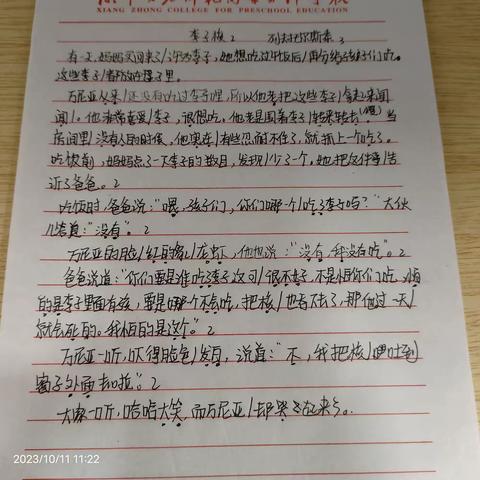 XIANG ZHONG COLLEGE FOR PRESCHOOL EDUCATION
李子核 2 列夫·托尔斯泰 3
有一天,妈妈买回来了/许多李子,她想吃过午饭后/再分给孩子们吃。
这些李子/都放在碟子里。
万尼亚从来/还没有吃过李子哩,所以他老把这些李子/拿起来闻
闻/。他非常喜爱/李子,很想吃。他老是围着李子/转来转去/(嗯)当
房间里/没有人的时候,他实在/有些忍耐不住了,就抓上一个吃了。
吃饭前,妈妈点了一下李子的数目,发现/少了一个。她把这件事/告
诉了爸爸。2
吃饭时,爸爸说:“喂,孩子们,你们哪一个/吃了李子吗?”大伙
儿答道:“没有”。2
万尼亚的脸/红得象/龙虾,他也说:“没有,我没有吃”。2
爸爸说道:“你们要是谁吃了李子这可/很不好,不是怕你们吃,怕
的是李子里面有核,要是哪个不会吃,把核/也吞下去了,那他过一天/
就会死的。我怕的是这个”。2
万尼亚一听,吓得脸色/发白,说道:“不,我把核/吐到
窗子外面去啦”。2
大家一听,哈哈大笑,而万尼亚/却哭了起来5。
2023/10/11 11:22